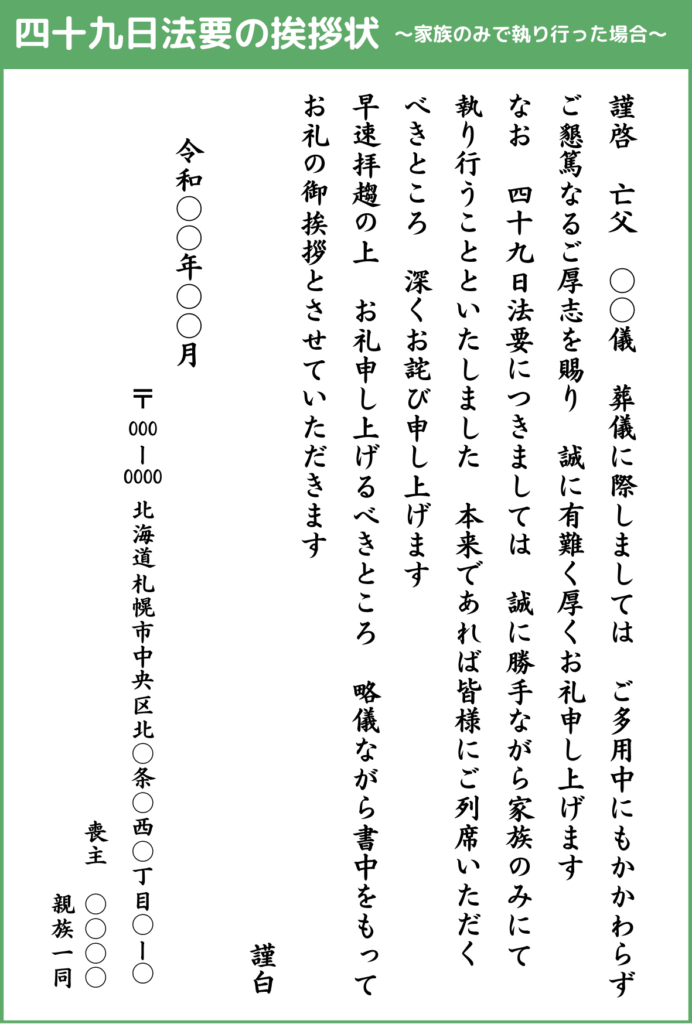 四十九日法要の挨拶状 ～家族のみで執り行った場合～
謹啓　亡父　〇〇儀　葬儀に際しましては　ご多用中にもかかわらず
ご懇篤なるご厚志を賜り　誠に有難く厚くお礼申し上げます
なお　四十九日法要につきましては　誠に勝手ながら家族のみにて
執り行うことといたしました　本来であれば皆様にご列席いただく
べきところ　深くお詫び申し上げます
早速拝趨の上　お礼申し上げるべきところ　略儀ながら書中をもって
お礼の御挨拶とさせていただきます
謹白
令和〇〇年〇〇月
〒000ー0000 北海道札幌市中央区北〇条〇西〇丁目〇ー〇
喪主　〇〇〇〇
親族一同